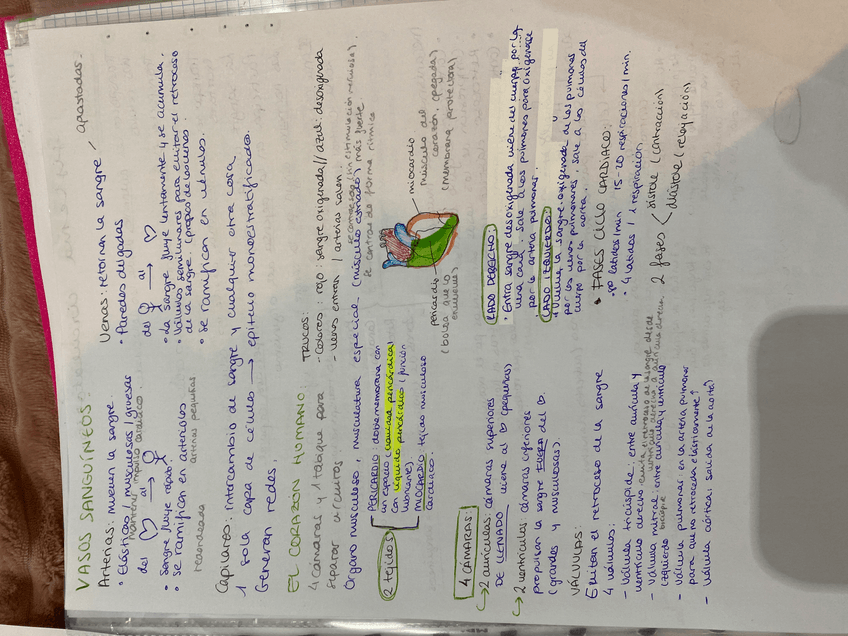 VASOS SANGUÍNEOS:
Arterias: mueven la sangre
• Elásticas / musculosas / gruesas
mantener impulso cardíaco.
del ♡ al
• sangre fluye rápido.
• se ramifican en arteriolas
redondeada arterias pequeñas
Venas: retornan la sangre / apastadas.
• Paredes delgadas
del al ♡
• la sangre fluye lentamente y se acumula.
• Válvulas semilunares para evitar el retroceso
de la sangre. (propios de las venas.
• se ramifican en vénulas.
Capilares: intercambio de sangre y cualquier otra cosa
1 sola capa de células → epitelio monoestratificado.
Generan redes.
EL CORAZÓN HUMANO:
4 Cámaras y 1 tabique para
separar circuitos
TRUCOS:
- Colores: rojo: sangre oxigenada // azul: desoxigenada
- venas entran / arterias salen.
Órgano musculoso, musculatura especial (músculo estriado) más fuerte
se contrae de forma rítmica
2 tejidos
PERICARDIO: doble membrana con
un espacio (cavidad pericárdica)
con líquido pericárdico (función
lubricante)
MIOCARDIO: tejido musculoso
cardíaco.
pericardio
(bolsa que lo
envuelve)
miocardio
músculo del
corazón (pegada)
(membrana protectora)
4 CÁMARAS:
→ 2 aurículas cámaras superiores
DE LLENADO viene al ♡ (pequeñas)
→ 2 ventrículos cámaras inferiores
propulsan la sangre FUERA del ♡
(grandes y musculosas).
LADO DERECHO:
• Entra sangre desoxigenada viene del cuerpo por la
vena cava, sale a los pulmones para oxigenarse
por la arteria pulmonar.
LADO IZQUIERDO:
• Vuelve la sangre oxigenada de los pulmones
por las venas pulmonares, sale a las células del
cuerpo por la aorta.
VÁLVULAS:
Evitan el retroceso de la sangre
4 válvulas:
- Válvula tricúspide: entre aurícula y
ventrículo derecho. evita el retroceso de la sangre desde
- Válvula mitral: entre aurícula y ventrículo
izquierdo bicúspide
- Válvula pulmonar: en la arteria pulmonar
para que no retroceda elásticamente↑
- Válvula aórtica: salida de la aorta)
• FASES CICLO CARDÍACO:
70 latidos/min 15-20 respiraciones/min.
• 4 latidos / 1 respiración.
2 fases < sístole (contracción)
diástole (relajación)